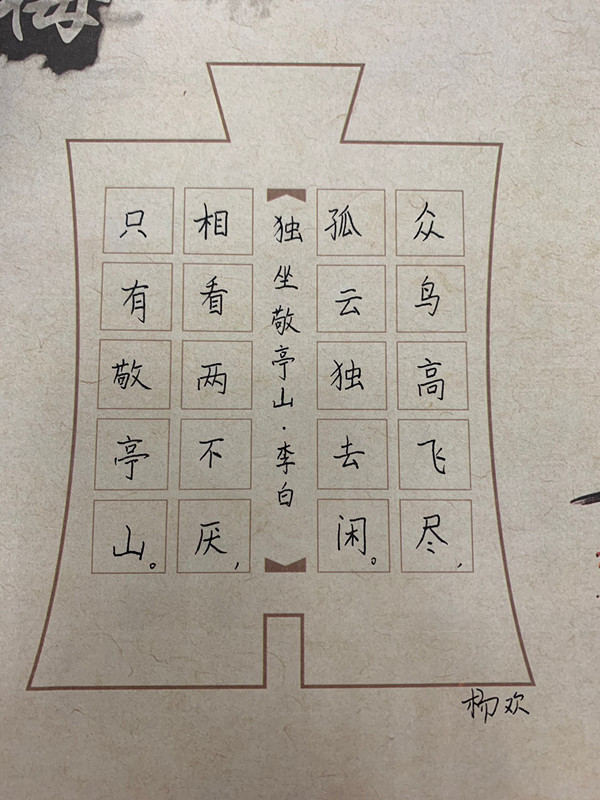 众鸟高飞尽，
孤云独去闲。
独坐敬亭山·李白
相看两不厌，
只有敬亭山。
杨欢